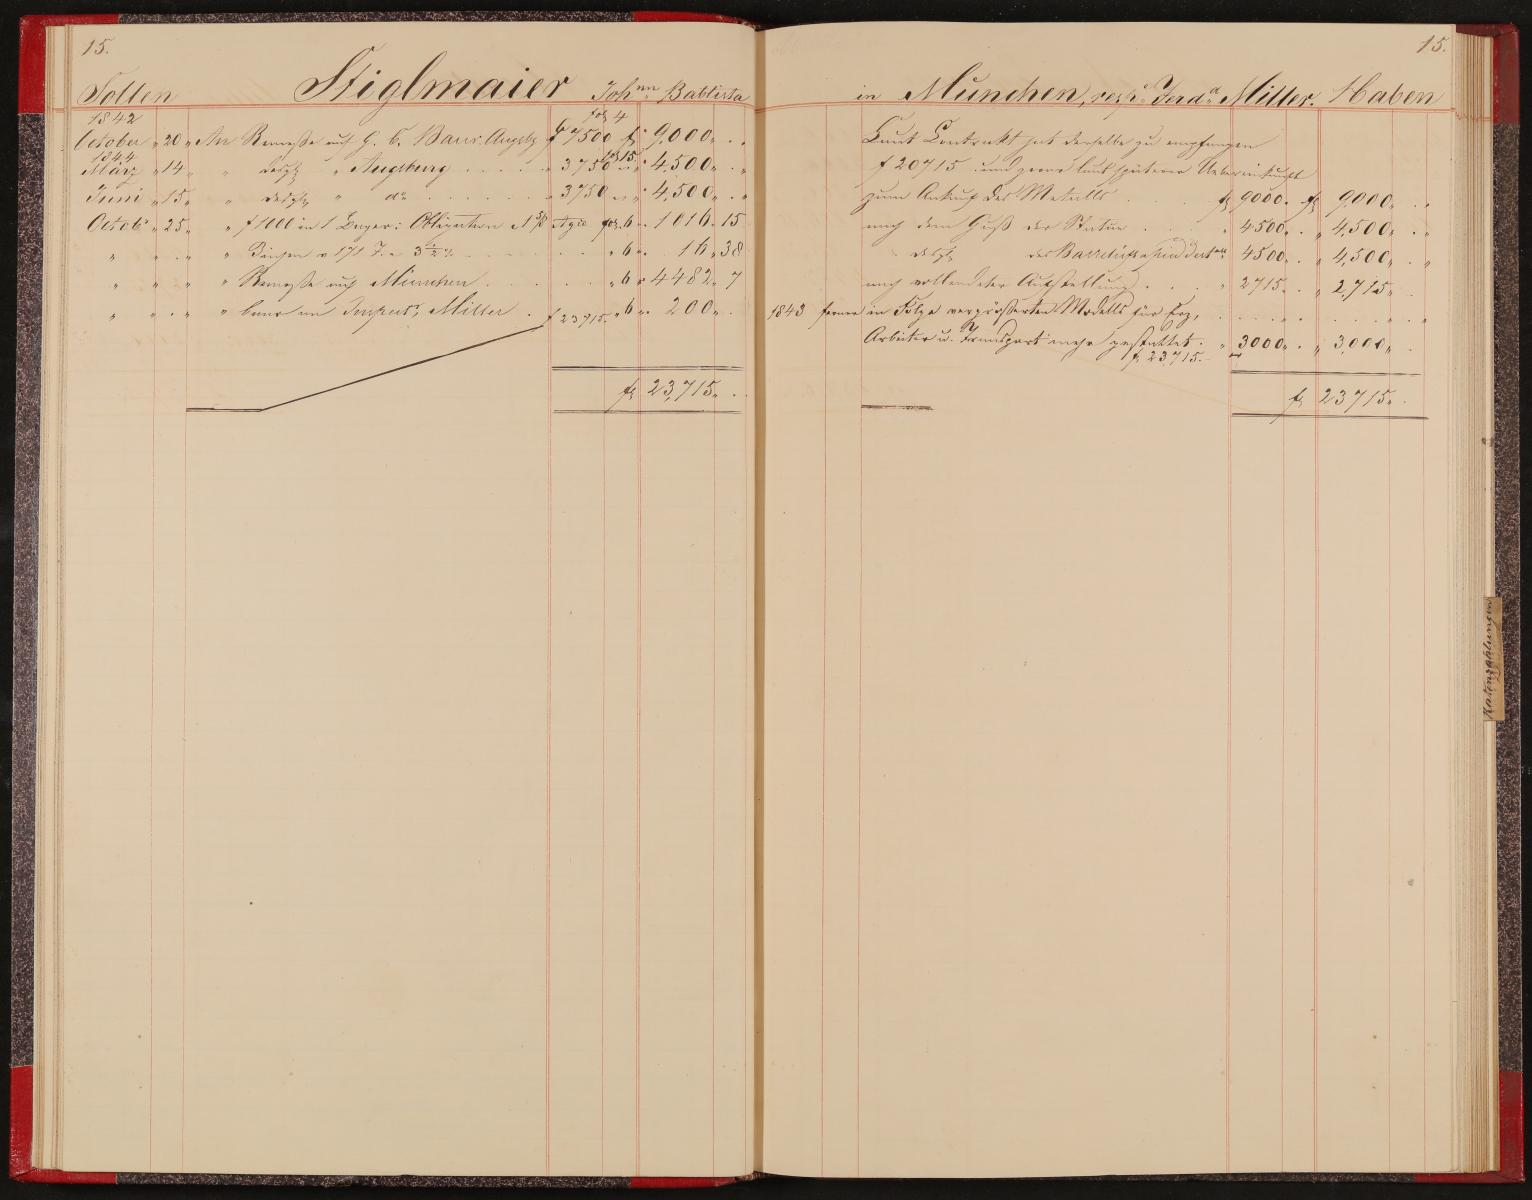 15.
Sollen Stiglmaier Joh.nn Babtista
1842 fol. 4
October 20 An Remesse auf G. C. Augsbg f 7500 fl 9,000
1844 fol 15
März 14 " desgl " Augsburg 3750 4,500
Juni 15 " desgl do 3750 4,500
Octob 25 " f 1000 in 1 Bayer: Obligation Agio fol. 6 1016. 15
" " " Zinsen 171 T. a 3 1/2 % " 6 16 38
" " " Remesse auf München " 6 4482 7
" " " baar an Inspect. Miller f 23715. " 6 200
fl 23,715
15.
in München, resp. Ferd. Miller. Haben
Laut Contrakt hat derselbe zu empfangen
f 20715 und zwar laut späterer Uebereinkunft
zum Ankauf des Metalls fl 9000 fl 9,000
nach dem Guß der Statue " 4500 " 4,500
desgl der Basreliefs 4500 " 4,500
nach vollendeter Aufstellung " 2715 " 2,715
1843 ferner in Folge vergrößerten Modells für Erz,
Arbeiter u. Transport mehr gestattet " 3000 " 3,000
f 23,715.
fl 23715
Ratenzahlungen